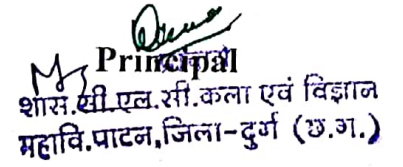 Principal
शास.सी.एल.सी.कला एवं विज्ञान
महावि.पाटन,जिला-दुर्ग (छ.ग.)